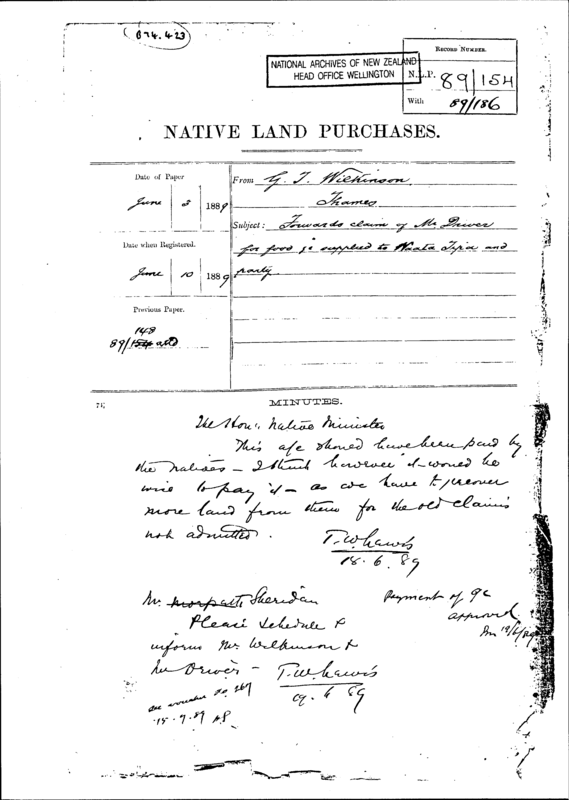 (B74.423)
NATIONAL ARCHIVES OF NEW ZEALAND
HEAD OFFICE WELLINGTON
RECORD NUMBER.
N.L.P. 89/154
With 89/186
NATIVE LAND PURCHASES.
Date of Paper
June 3 1889
Date when Registered.
June 10 1889
Previous Paper.
148
89/154
From G. T. Wilkinson
Thames
Subject: Forwards claim of Mr Driver
for food &c supplied to and
party
71
MINUTES.
The Hon. Native Minister
This a/c should have been paid by
the natives – I think however it would be
wise to pay it – as we have to procure
more land from them for the old claims
not admitted.
T. W. Lewis
18.6.89
Mr. Sheridan
Please schedule &
inform Mr. Wilkinson &
Mr Driver – T. W. Lewis
19.6.89
Payment of
approved
19/6/89
see voucher no. 267
15.7.89